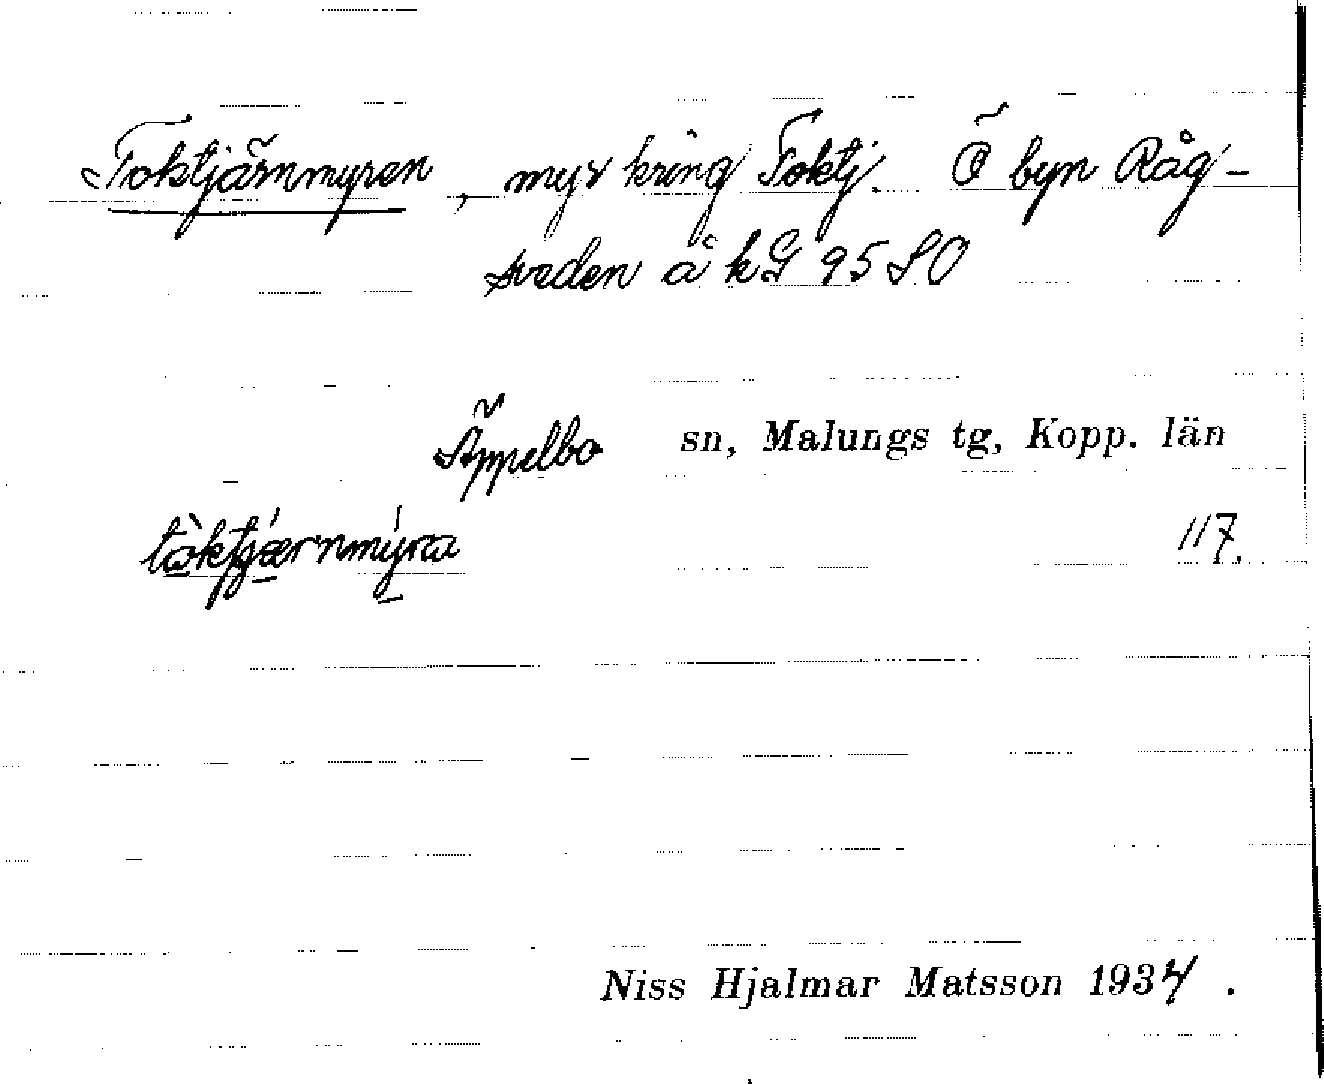 Toktjärnmyren, myr kring Toktj. Ö byn Råg-
sveden å kG 95 SO
Äppelbo sn, Malungs tg, Kopp. län
tòktjǽrnmýra 117.
Niss Hjalmar Matsson 1934.